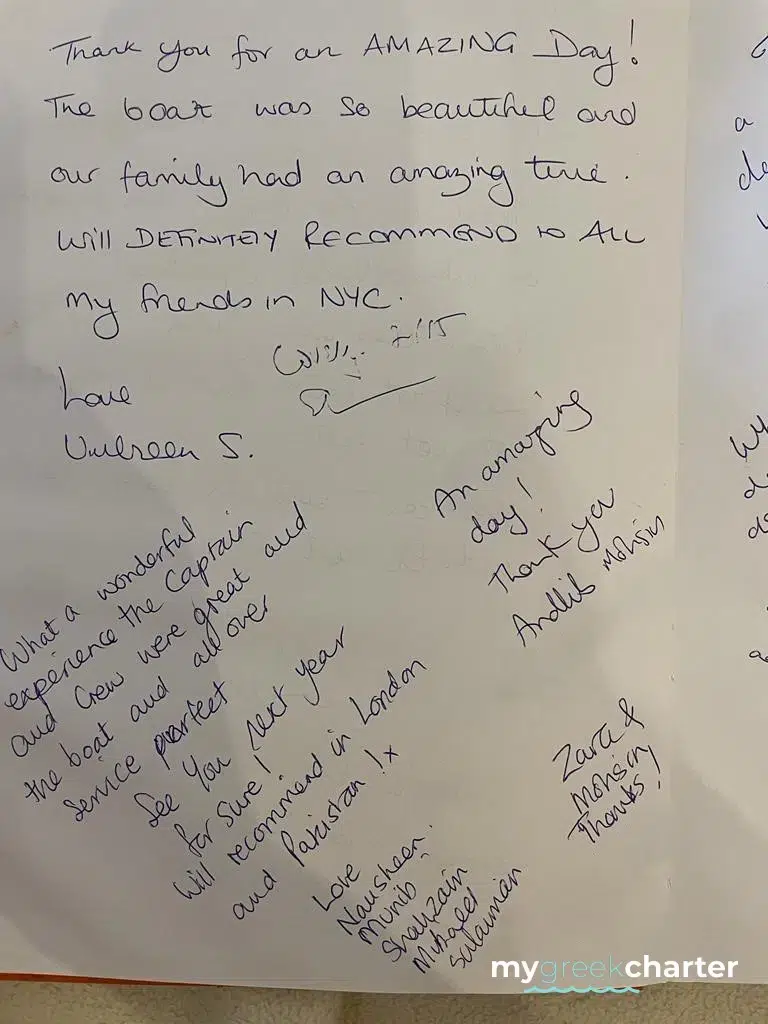 Thank you for an AMAZING Day!
The boat was so beautiful and
our family had an amazing time.
Will DEFINITELY RECOMMEND to ALL
my friends in NYC.
Love
S.
An amazing
day!
Thank you
Andlib Mohsin
What a wonderful
experience the Captain
and Crew were great and
the boat and all over
service perfect
See You next year
for sure!
Will recommend in London
and Pakistan!x
Love
Nausheen
Munib
Shahzain
Mikaeel
Sulaiman
Zara &
Mohsin
Thanks!
mygreekcharter